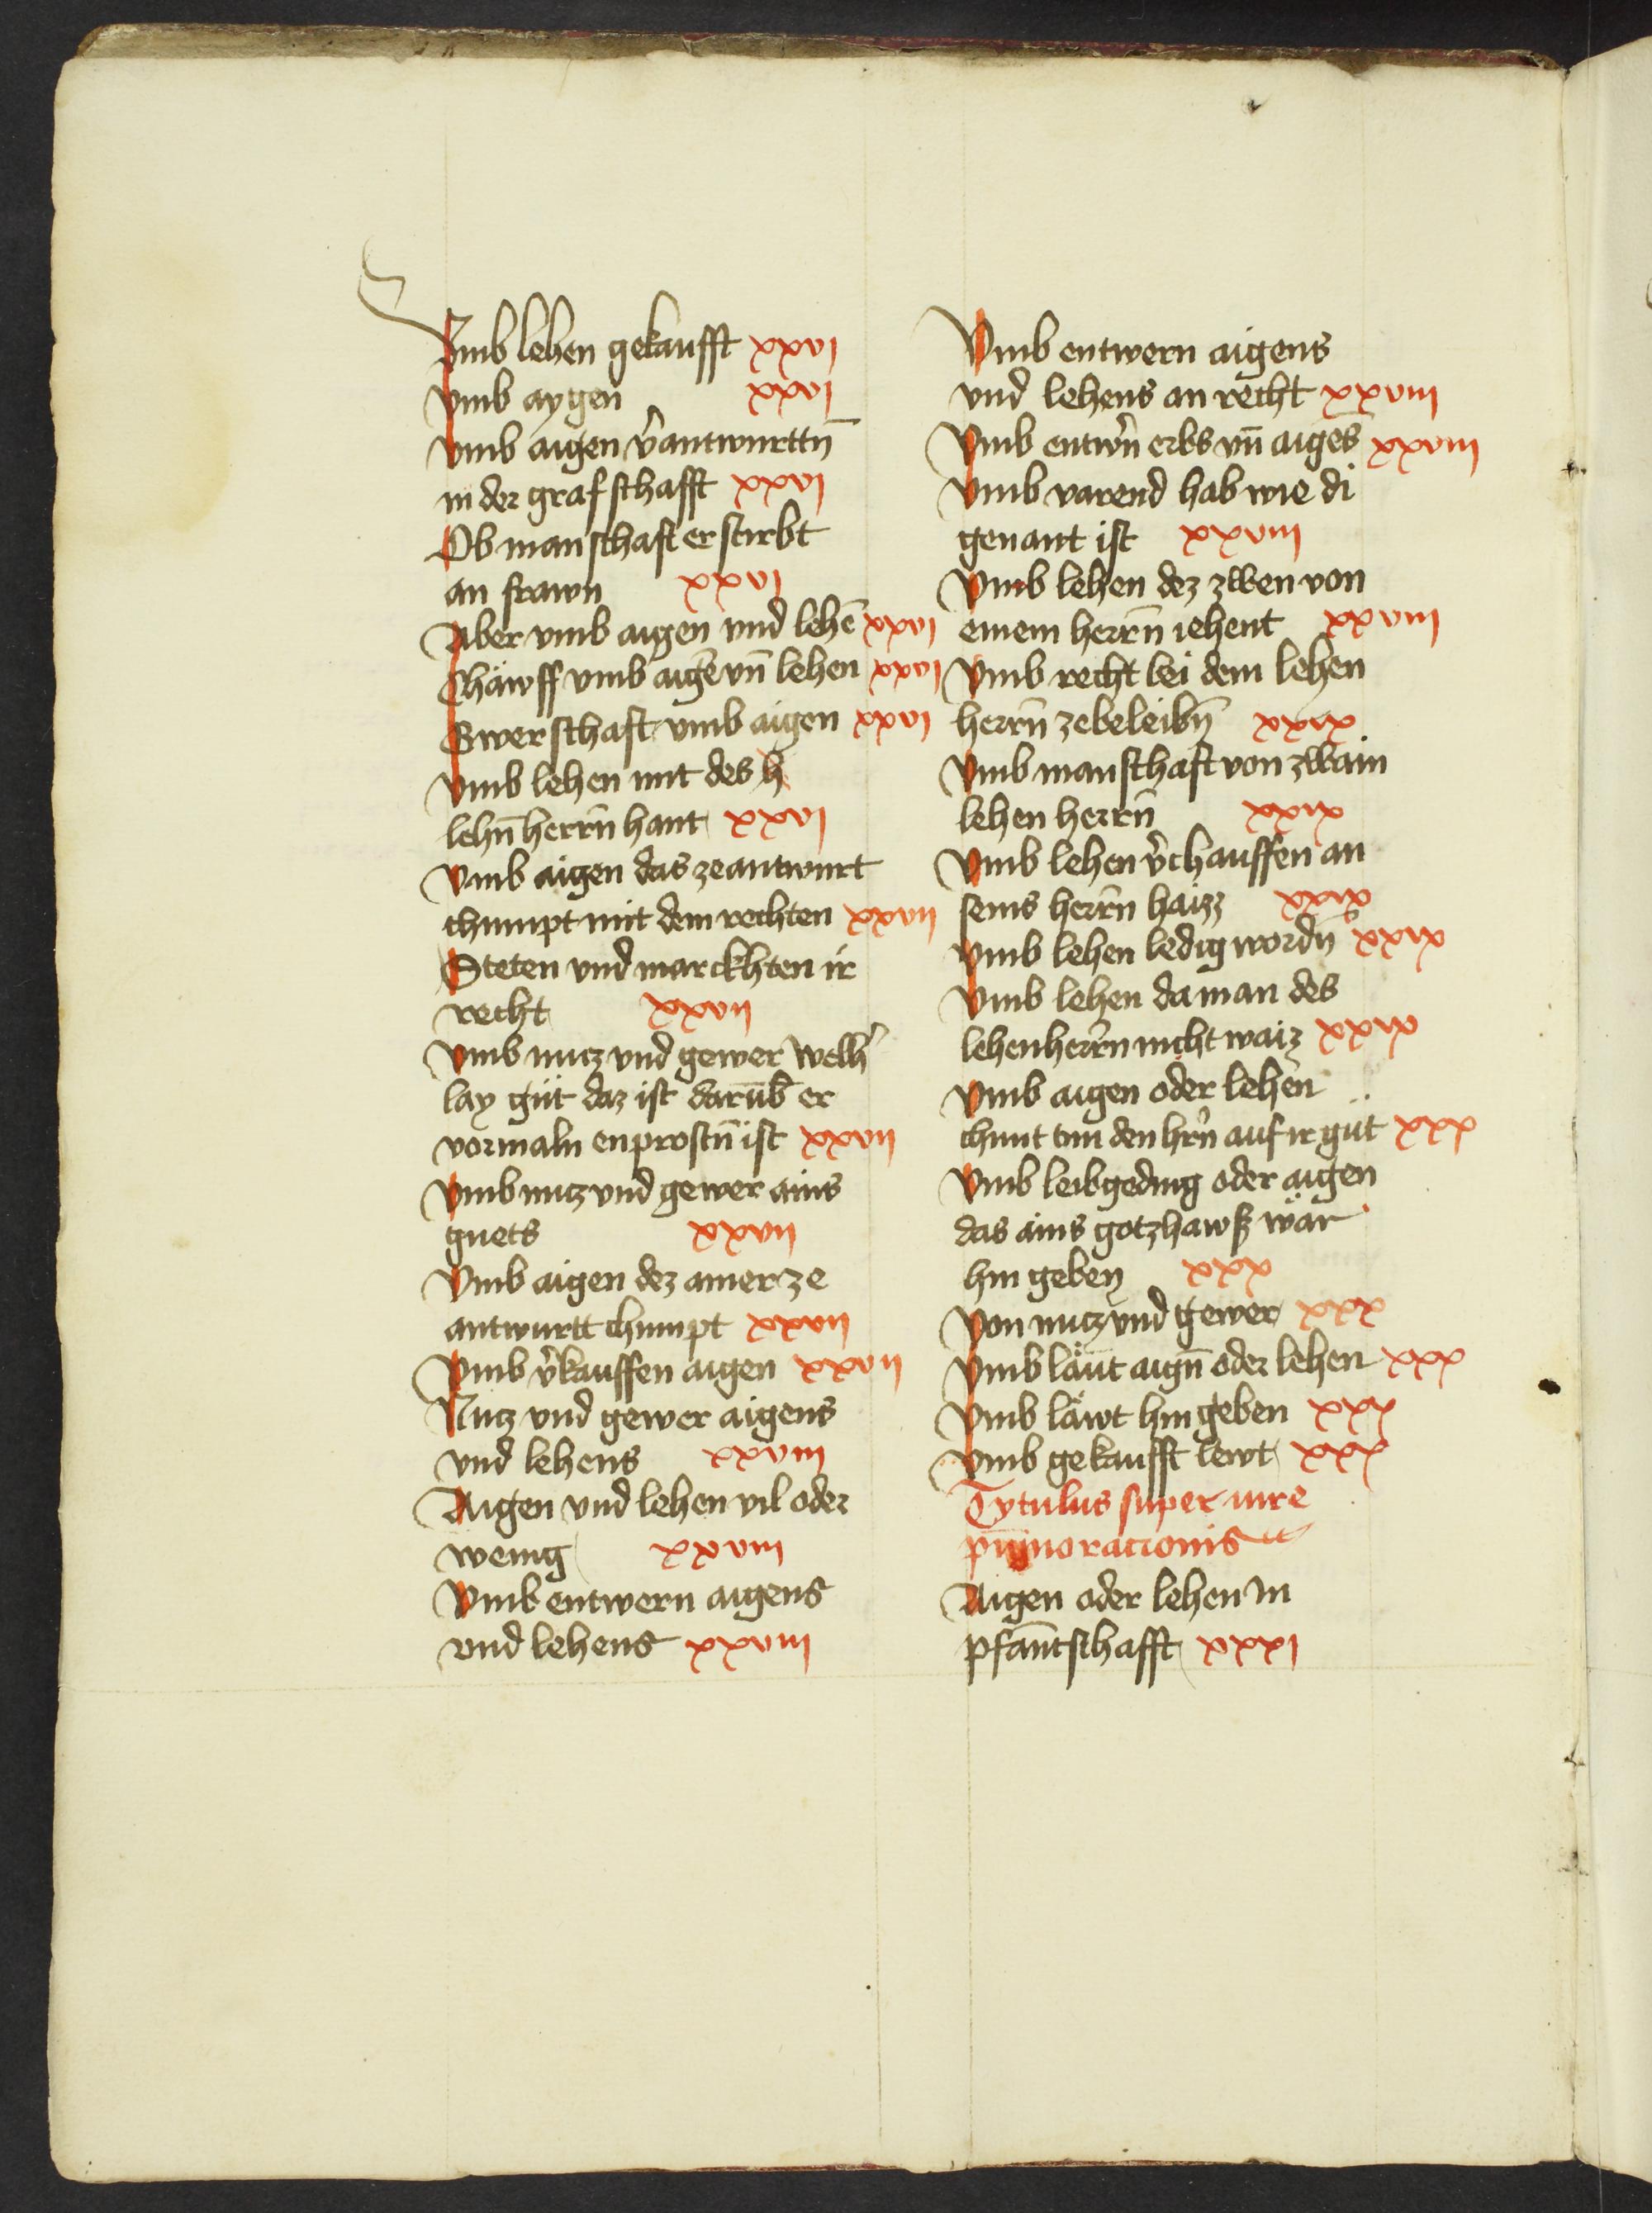 Vmb lehen gekaufft xxvj
Vmb aygen xxvj
Vmb aigen v̄antwurttn̄
in der graf schafft xxvj
Ob manschaft erstirbt
an frawn xxvj
Aber vmb aigen vnd lehn̄ xxvj
Chäwff vmb aigē vn̄ lehen xxvj
Gwerschaft vmb aigen xxvj
Vmb lehen mit des h
lehn̄ herrn̄ hant xxvj
Vmb aigen das ze antwurt
chumpt mit dem rechten xxvij
Steten vnd marckhten ir
recht xxvij
Vmb nucz vnd gewer welh̄
lay güt daz ist darūb er
vormaln enprostn̄ ist xxvij
Vmb nucz vnd gewer ains
guets xxvij
Vmb aigen dez ainer ze
antwurtt chumpt xxvij
Vmb v̄kauffen aigen xxvij
Nucz vnd gewer aigens
vnd lehens xxviij
Aigen vnd lehen vil oder
wenig xxviij
Vmb entwern aigens
vnd lehens xxviij
Vmb entwern aigens
vnd lehens an recht xxviij
Vmb entwn̄ erbs vn̄ aigēs xxviij
Vmb varend hab wie di
genant ist xxviij
Vmb lehen dez zwen von
einem herrn̄ iehent xxviij
Vmb recht bei dem lehen
herrn̄ ze beleibn̄ xxix
Vmb manschaft von zwain
lehen herrn̄ xxix
Vmb lehen v̄chauffen an
seins herrn̄ haizz xxix
Vmb lehen ledig wordn̄ xxix
Vmb lehen da man des
lehenherrn̄ nicht waiz xxix
Vmb aigen oder lehen
chunt tun den hrn̄ auf ir güt xxx
Vmb leibgeding oder aigen
das ains gotzhawsz wär
hin geben xxx
Von nucz vnd gewer xxx
Vmb läut aign̄ oder lehen xxx
Vmb läwt hin geben xxx
Vmb gekaufft lewt xxx
Tytulus super iure
pignoracionis
Aigen oder lehen in
pfantschafft xxxj